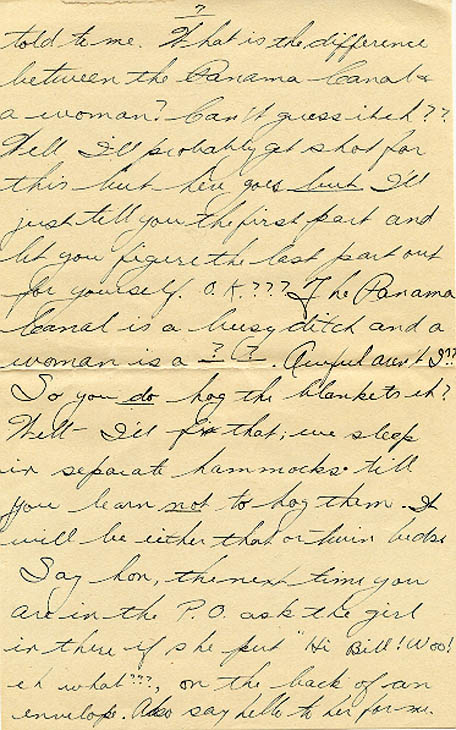 7
told to me. What is the difference
between the Panama Canal &
a woman? Can't guess it eh??
Well I'll probably get shot for
this but here goes but I'll
just tell you the first part and
let you figure the last part out
for yourself. O.K.??? The Panama
Canal is a busy ditch and a
woman is a ? ?. Awful aren't I??
So you do hog the blankets eh?
Well I'll fix that; we sleep
in separate hammocks till
you learn not to hog them. It
will be either that or twin beds.
Say hon, the next time you
are in the P.O. ask the girl
in there if she put "Hi Bill! Woo!
eh what???, on the back of an
envelope. Also say hello to her for me.